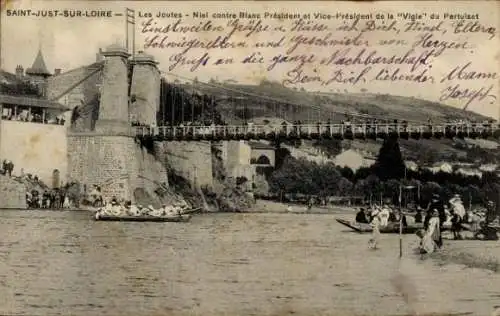 SAINT-JUST-SUR-LOIRE — Les Joutes - Niel contre Blanc Président et Vice-Président de la "Vigie" du Pertuiset
Einstweilen Grüße und Küsse ich Dich, Kinel, Eltern,
Schwiegereltern und Geschwister von Herzen
Gruß an die ganze Nachbarschaft
Dein Dich liebender Mann
Joseph